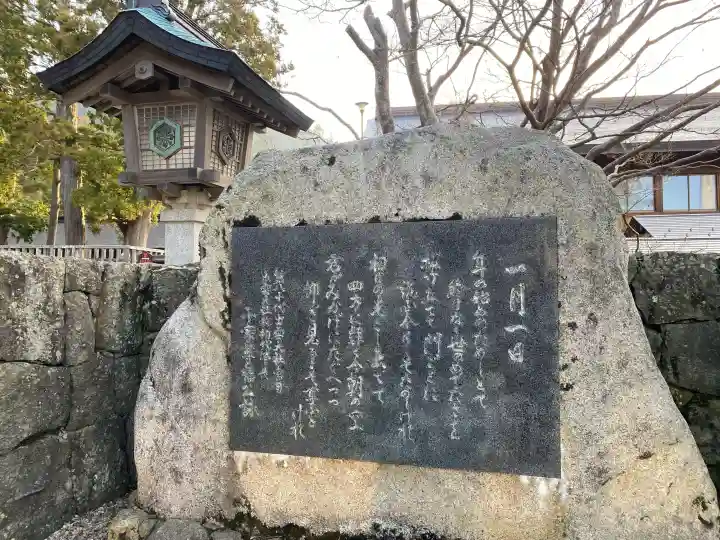 一月一日
年の始めのためしとて
終りなき世のめでたさを
松竹たてて門ごとに
祝ふ今日こそたのしけれ
初日の光さし出て
四方に輝く今朝の空
君がみかげにたぐへつつ
仰ぎ見るこそ尊とけれ